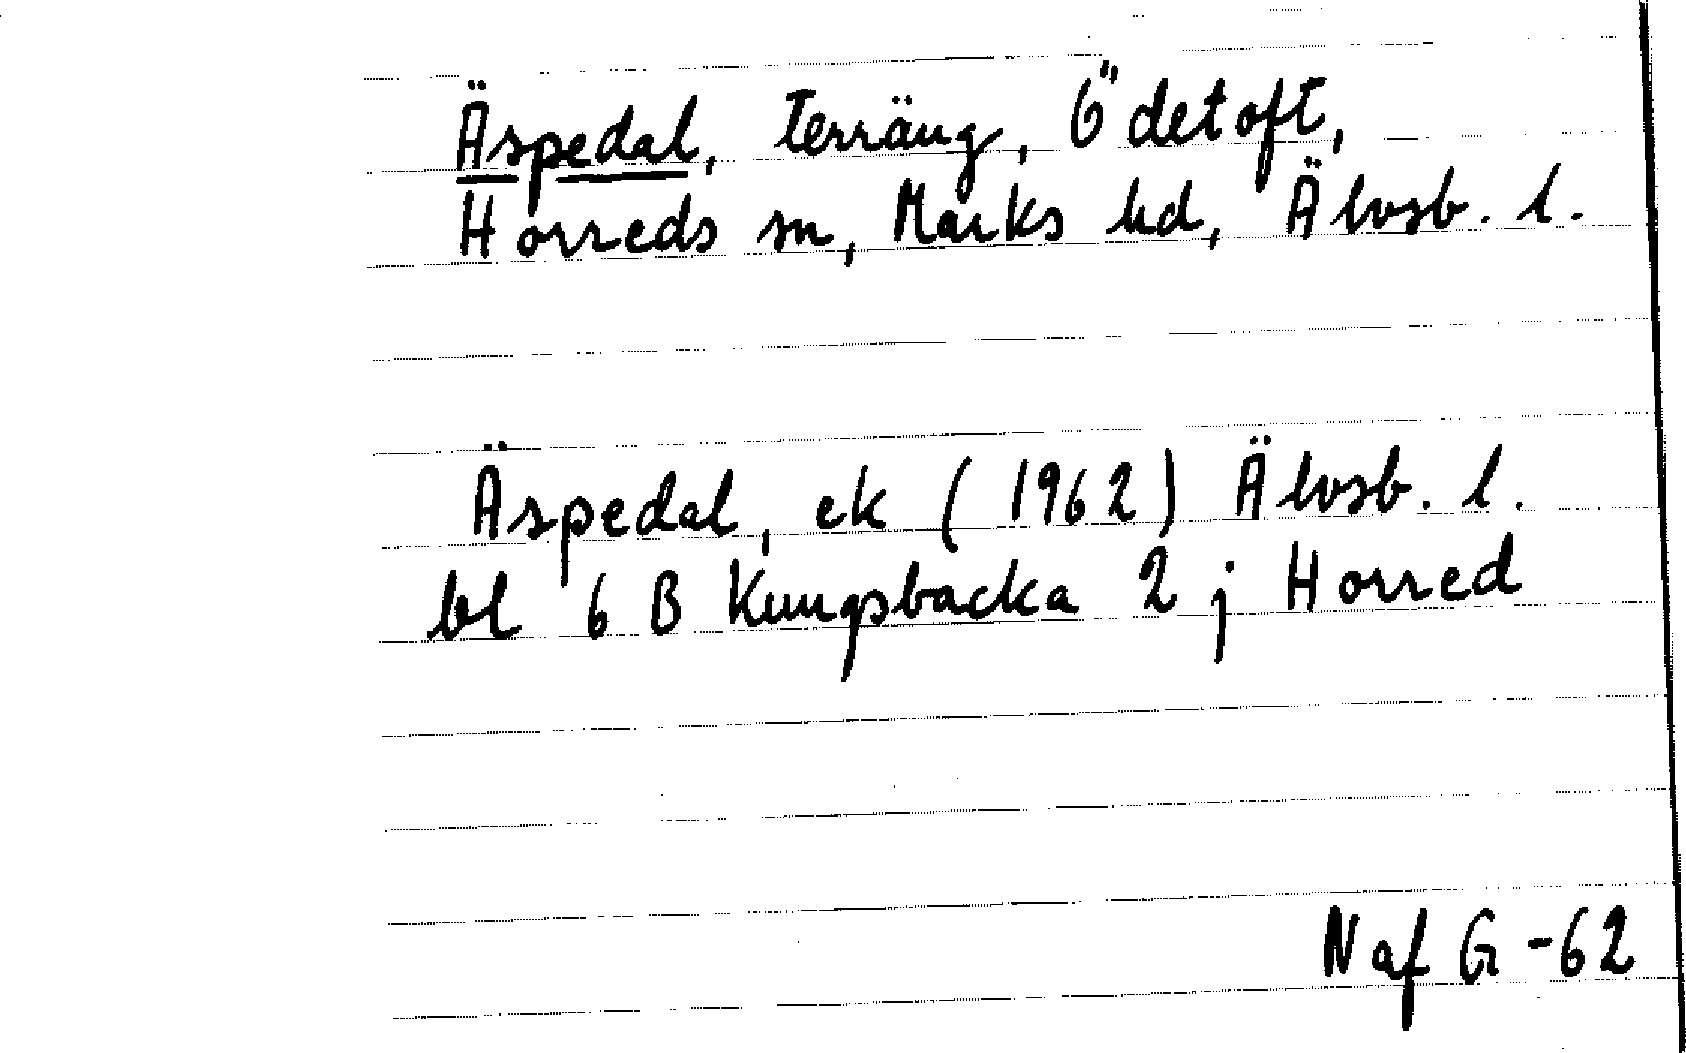 Äspedal, terräng, Ödetoft,
Horreds sn, Marks hd, Älvsb. l.
Äspedal, ek (1962) Älvsb. l.
bl 6 B Kungsbacka 2 j Horred
N af G -62